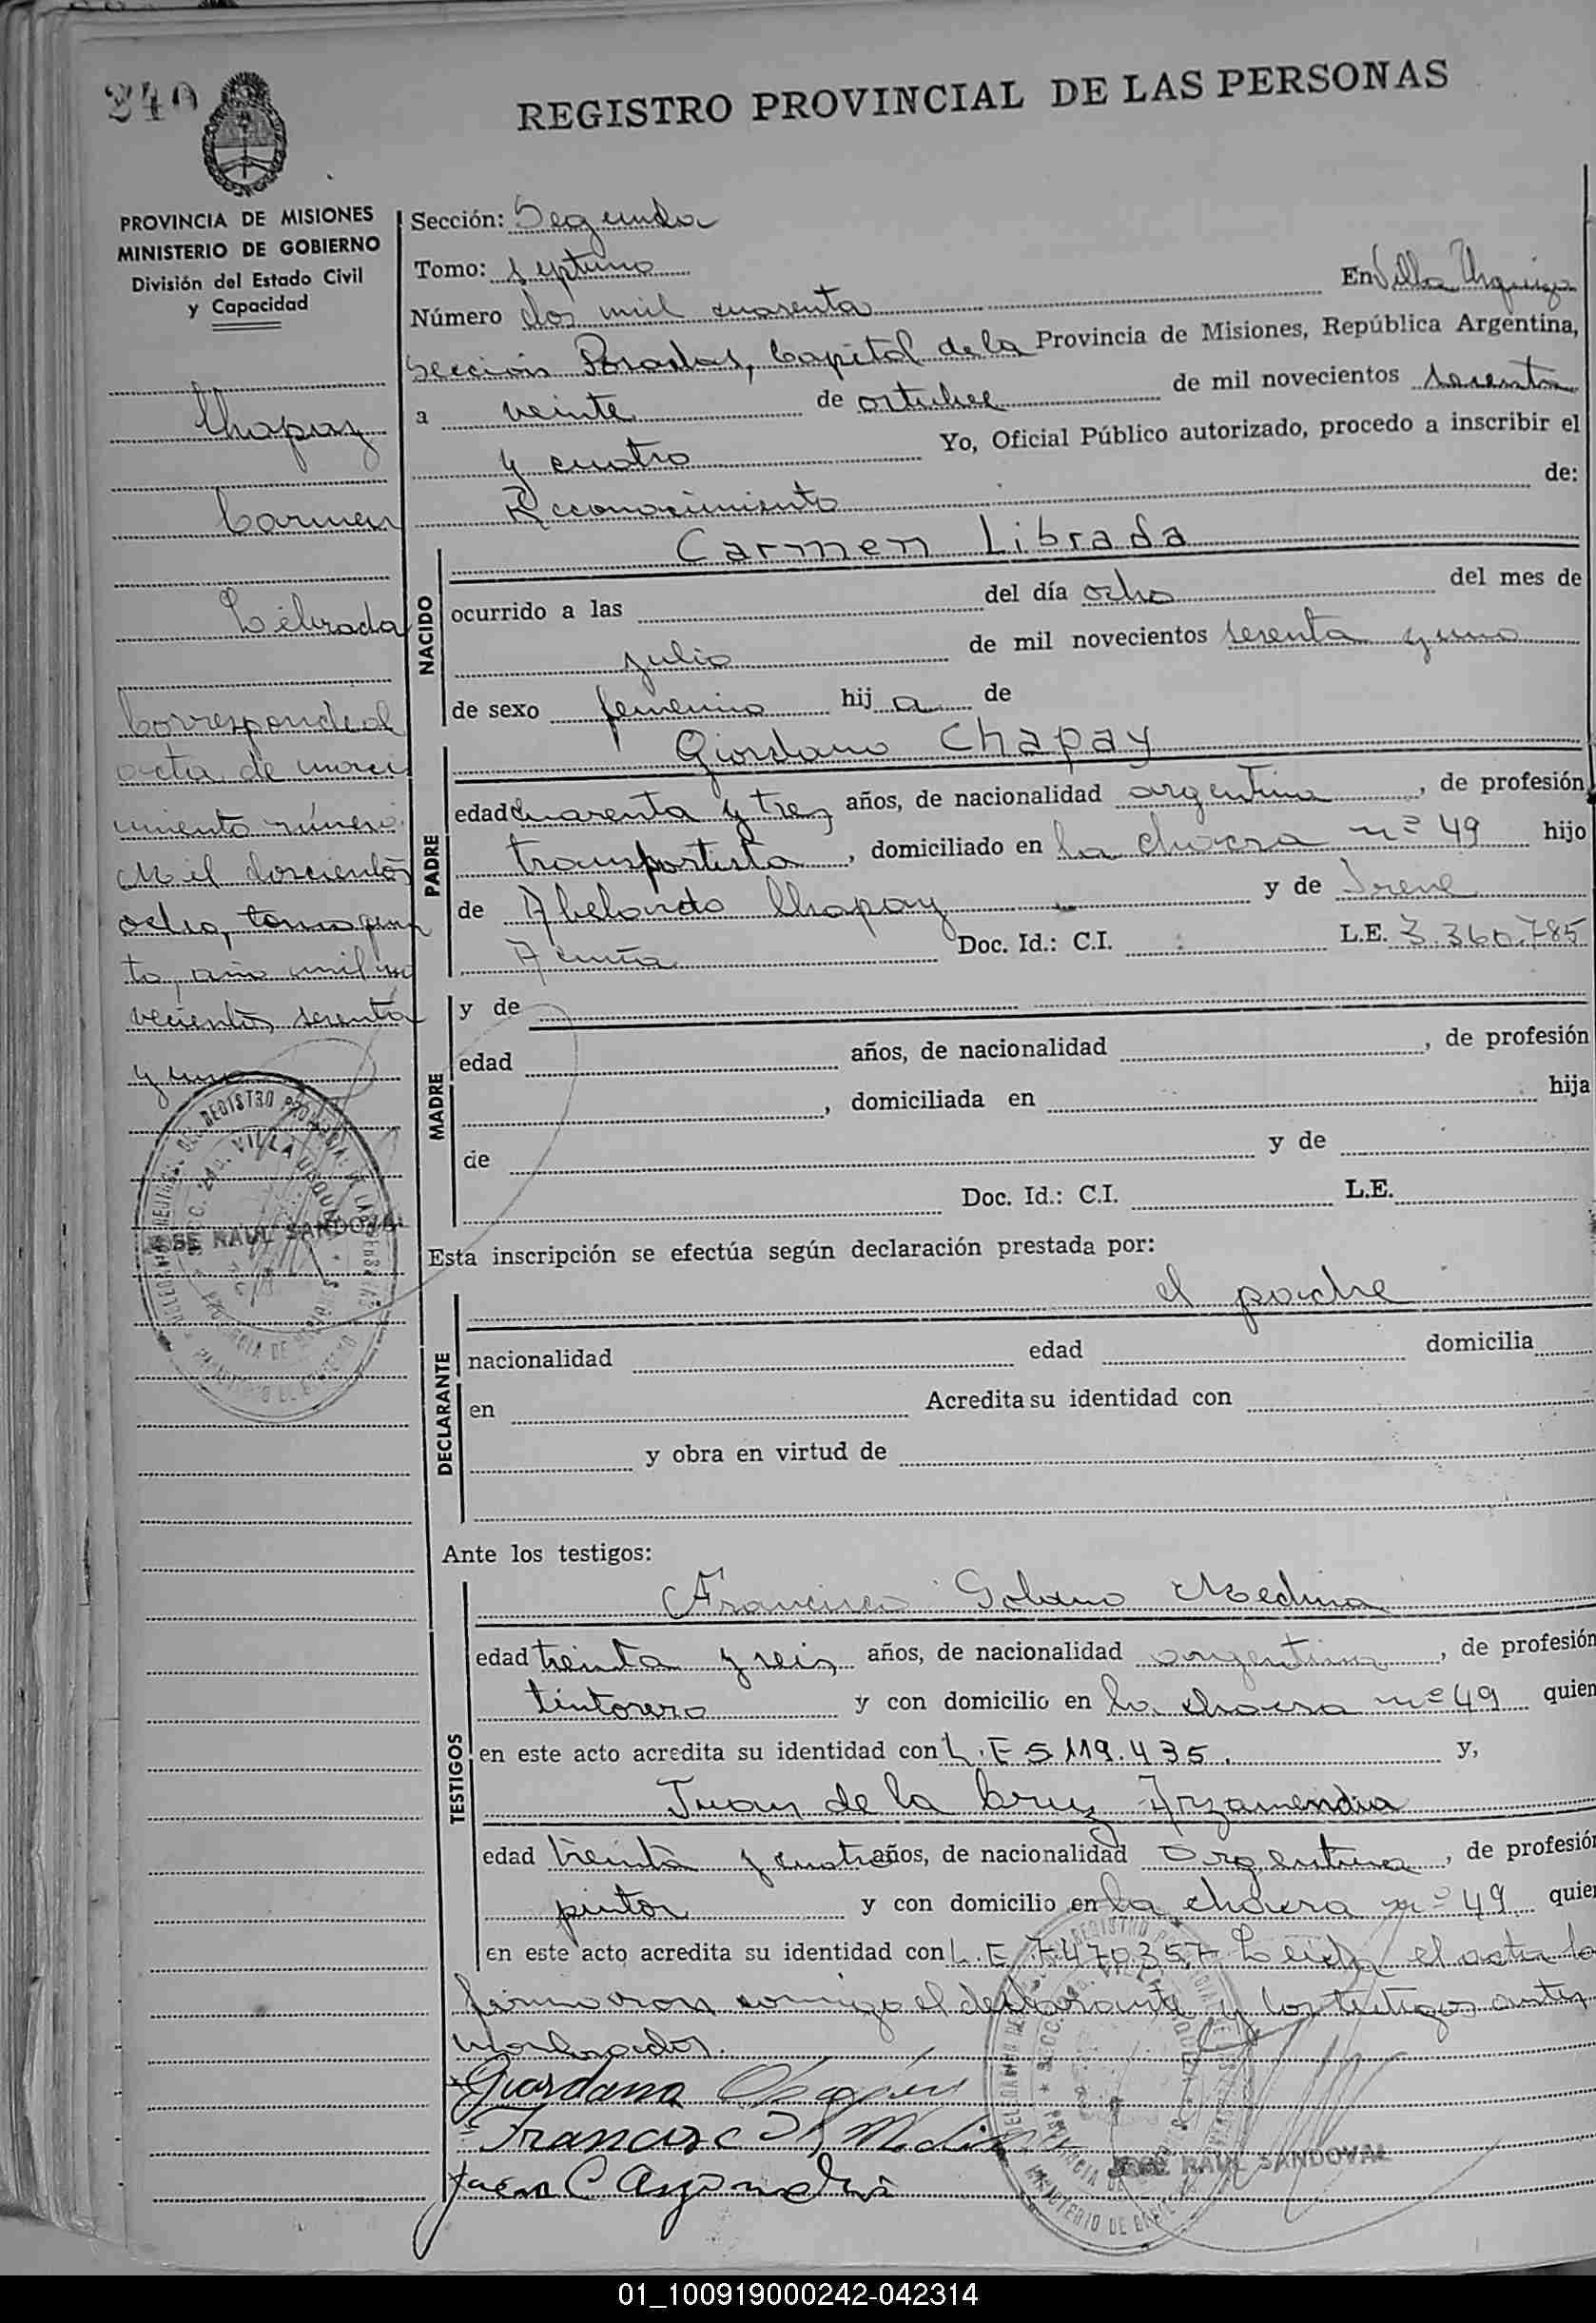 240
REGISTRO PROVINCIAL DE LAS PERSONAS
PROVINCIA DE MISIONES
MINISTERIO DE GOBIERNO
División del Estado Civil
y Capacidad
Chapay
Carmen
Librada
Corresponde al
acta de naci
miento número
Mil doscientos
ocho, tomo quin
to, año mil no
vecientos sesenta
y uno
JOSE RAUL SANDOVAL
Sección: Segunda
Tomo: septimo
Número dos mil cuarenta En Villa Urquiza
Sección Posadas, Capital de la Provincia de Misiones, República Argentina,
a veinte de octubre de mil novecientos sesenta
y cuatro Yo, Oficial Público autorizado, procedo a inscribir el
Reconocimiento de:
Carmen Librada
NACIDO
ocurrido a las del día ocho del mes de
julio de mil novecientos sesenta y uno
de sexo femenino hij a de
Giordano Chapay
PADRE
edad cuarenta y tres años, de nacionalidad argentina, de profesión
transportista, domiciliado en la chacra nº 49 hijo
de Abelardo Chapay y de Irene
Acuña Doc. Id.: C.I. L.E. 3.360.785
MADRE
y de
edad años, de nacionalidad , de profesión
, domiciliada en hija
de y de
Doc. Id.: C.I. L.E.
Esta inscripción se efectúa según declaración prestada por:
el padre
DECLARANTE
nacionalidad edad domicilia
en Acredita su identidad con
y obra en virtud de
Ante los testigos:
Francisco Solano Medina
TESTIGOS
edad treinta y seis años, de nacionalidad argentina, de profesión
tintorero y con domicilio en la chacra nº 49 quien
en este acto acredita su identidad con L.E 5.119.435. y,
Juan de la Cruz Arzamendia
edad treinta y cuatro años, de nacionalidad argentina, de profesión
pintor y con domicilio en la chacra nº 49 quien
en este acto acredita su identidad con L.E. 7.470.357 Leida el acta la
firmaron conmigo el declarante y los testigos antes
nombrados.
Giordano Chapay
Francisco S Medina
Juan C Arzamendia
JOSE RAUL SANDOVAL
01_100919000242-042314